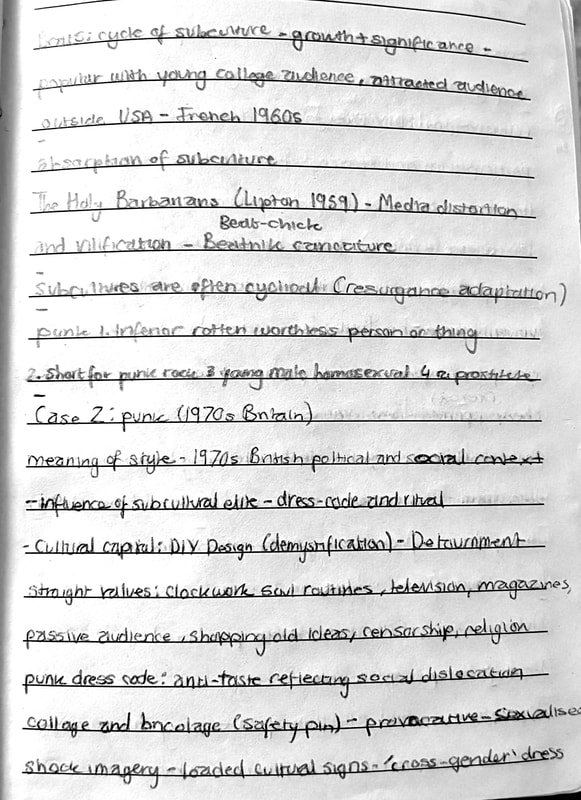 cycle of subculture - growth + significance -
popular with young college audience, attracted audience
outside USA - French 1960s
absorption of subculture
The Holy Barbarians (Lipton 1959) - Media distortion
Beat-chick
and vilification - Beatnik caricature
subcultures are often cyclical (resurgance adaptation)
punk 1. inferior rotten worthless person or thing
2. Short for punk rock 3 young male homosexual 4 a prostitute
Case 2: punk (1970s Britain)
meaning of style - 1970s British political and social context
- influence of subcultural elite - dress-code and ritual
- Cultural capital: DIY Design (demystification) - Detournment
straight values: clockwork soul routines, television, magazines,
passive audience, shopping old ideas, censorship, religion
punk dress code: anti-taste reflecting social dislocation
collage and bricolage (safety pin) - provocative - sexualise
shock imagery - loaded cultural signs - 'cross-gender' dress